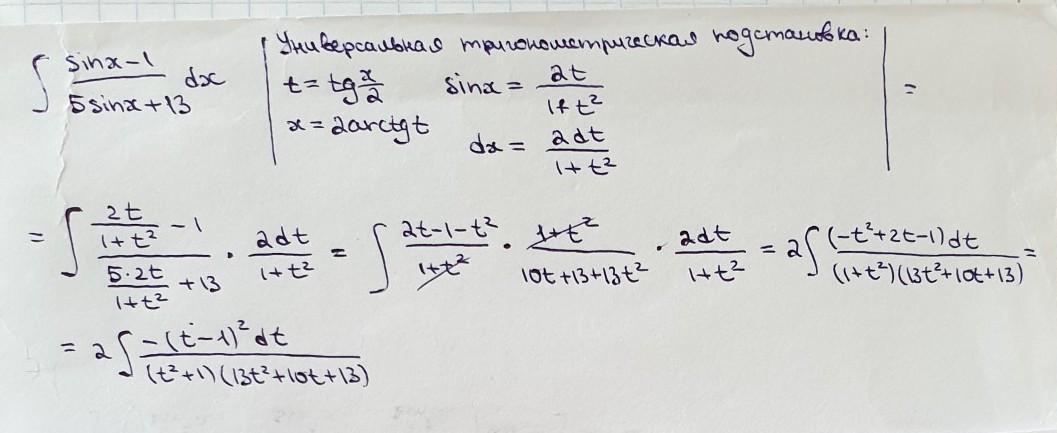 ∫ (sinx-1)/(5sinx+13) dx | Универсальная тригонометрическая подстановка: | =
t = tg x/2   sinx = 2t/(1+t²)
x = 2arctgt   dx = 2dt/(1+t²)
= ∫ (2t/(1+t²) - 1)/((5·2t)/(1+t²) + 13) · 2dt/(1+t²) = ∫ (2t-1-t²)/(1+t²) · (1+t²)/(10t+13+13t²) · 2dt/(1+t²) = 2∫ (-t²+2t-1)dt/((1+t²)(13t²+10t+13)) =
= 2∫ -(t-1)²dt/((t²+1)(13t²+10t+13))